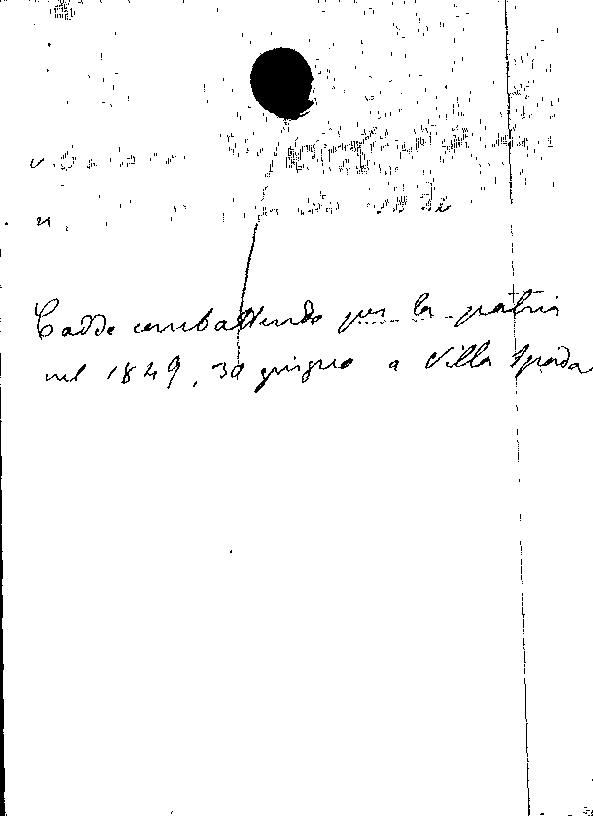 Cadde combattendo per la patria
nel 1849, 30 giugno a Villa Spada